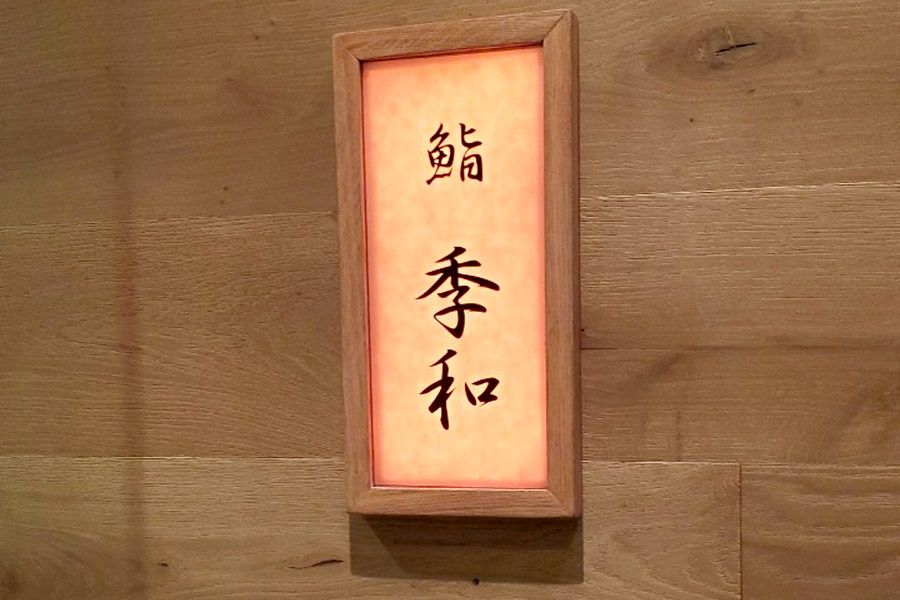 鮨
季和